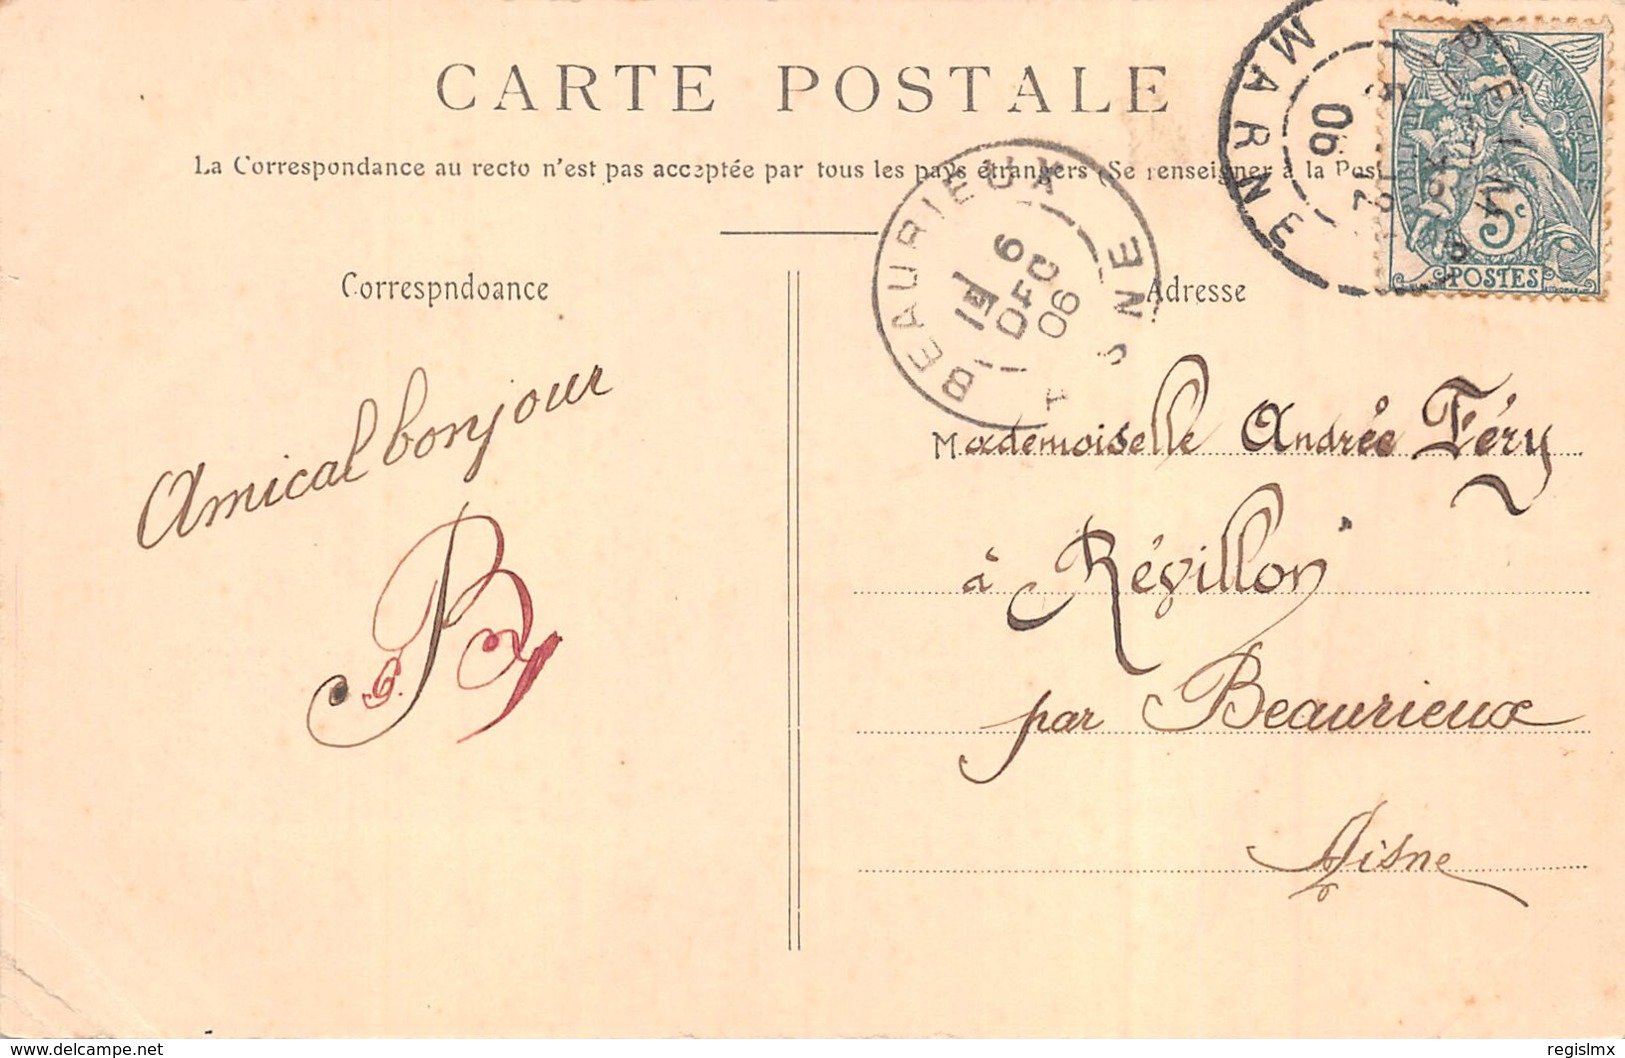 CARTE POSTALE
La Correspondance au recto n'est pas acceptée par tous les pays étrangers (Se renseigner à la Pos
Correspndoance
Adresse
REIMS
MARNE
06
RÉPUBLIQUE FRANÇAISE
5c
POSTES
BEAURIEUX
1E
6
DEC
06
AISNE
Amical bonjour
Mademoiselle Andrée Féry
à Révillon
par Beaurieux
Aisne
www.delcampe.net
regislmx